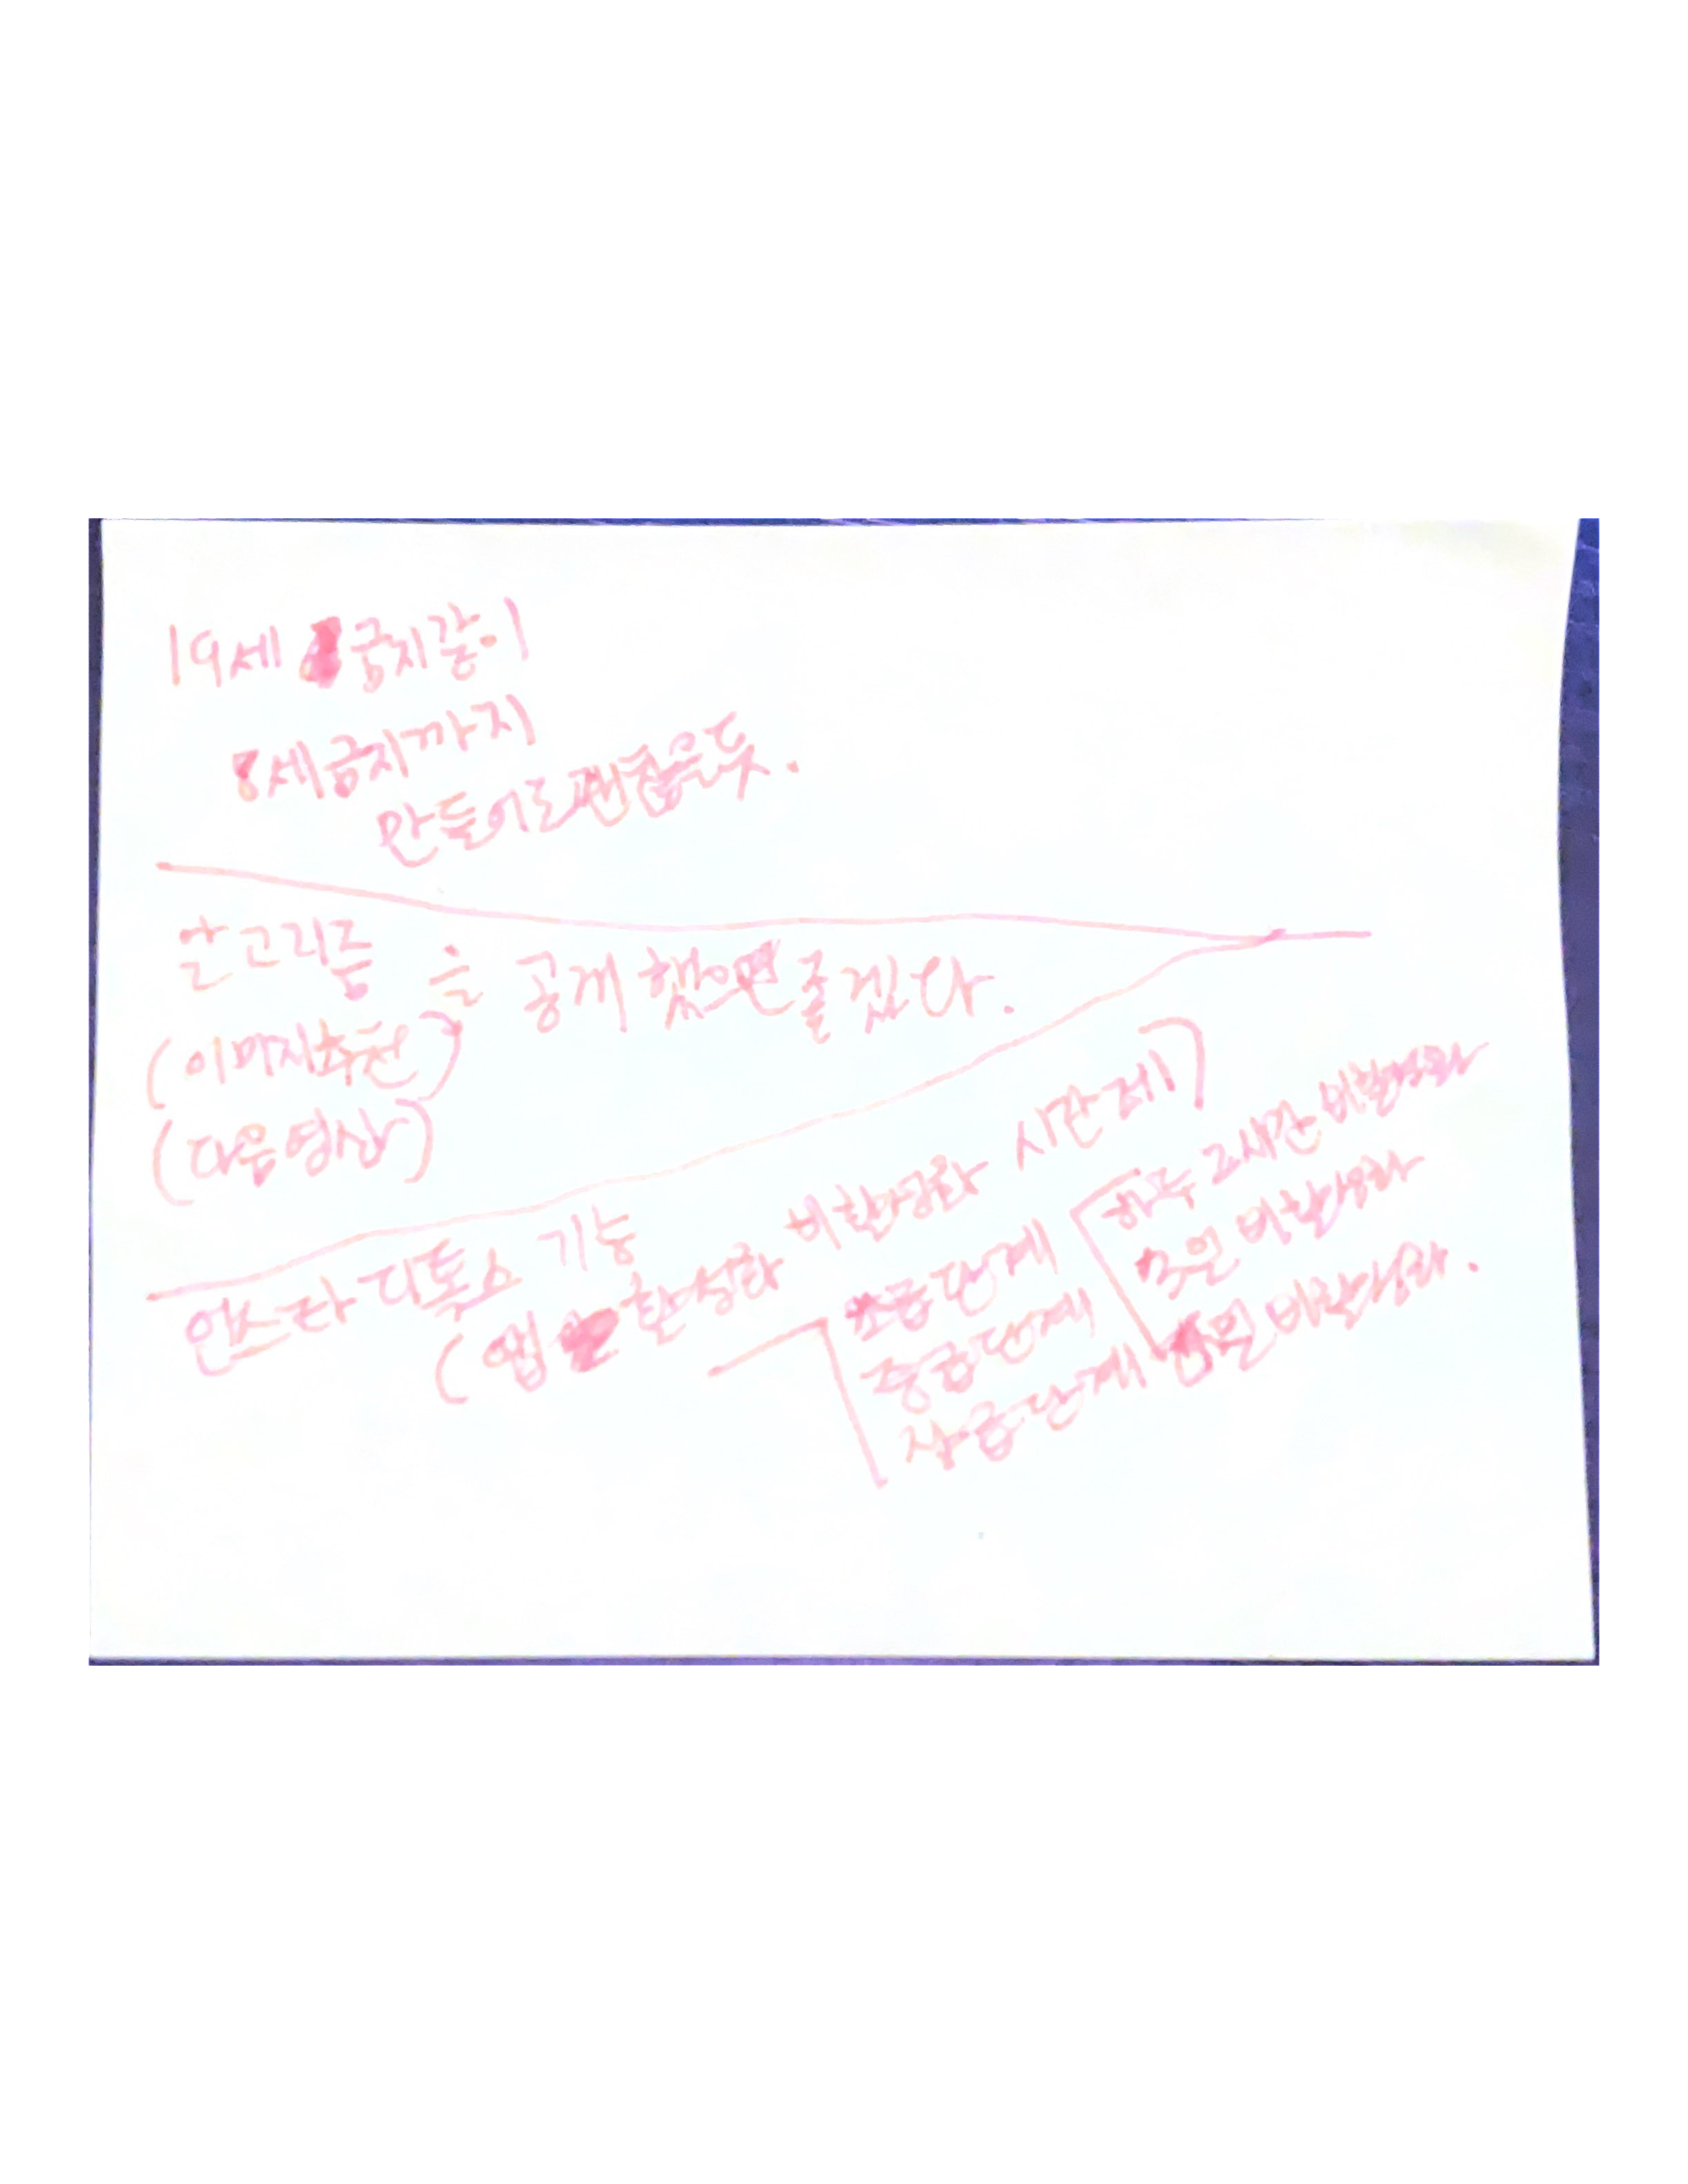 19세 금지같이
8세금지까지
만들어도괜찮을듯.
알고리즘
(이미지추천)을 공개했으면좋겠다.
(다음영상)
인스타 디톡스 기능
(앱 활성화 비활성화 시간제)
초급단계 하루 2시간 비활성화
중급단계 3일 비활성화
상급단계 일 비활성화.